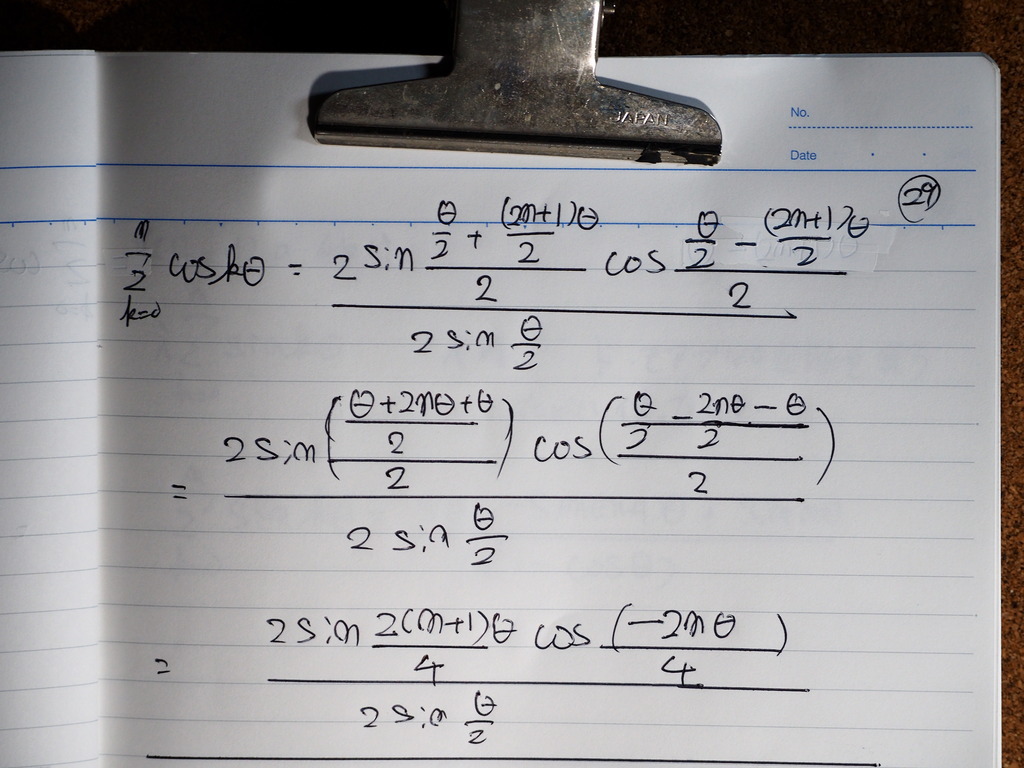 JAPAN
No.
Date
29
n
Σ cos kθ = (2 sin ((θ/2 + (2n+1)θ/2)/2) cos ((θ/2 − (2n+1)θ/2)/2)) / (2 sin θ/2)
k=0
= (2 sin (((θ+2nθ+θ)/2)/2) cos (((θ − 2nθ − θ)/2)/2)) / (2 sin θ/2)
= (2 sin (2(n+1)θ/4) cos ((−2nθ)/4)) / (2 sin θ/2)